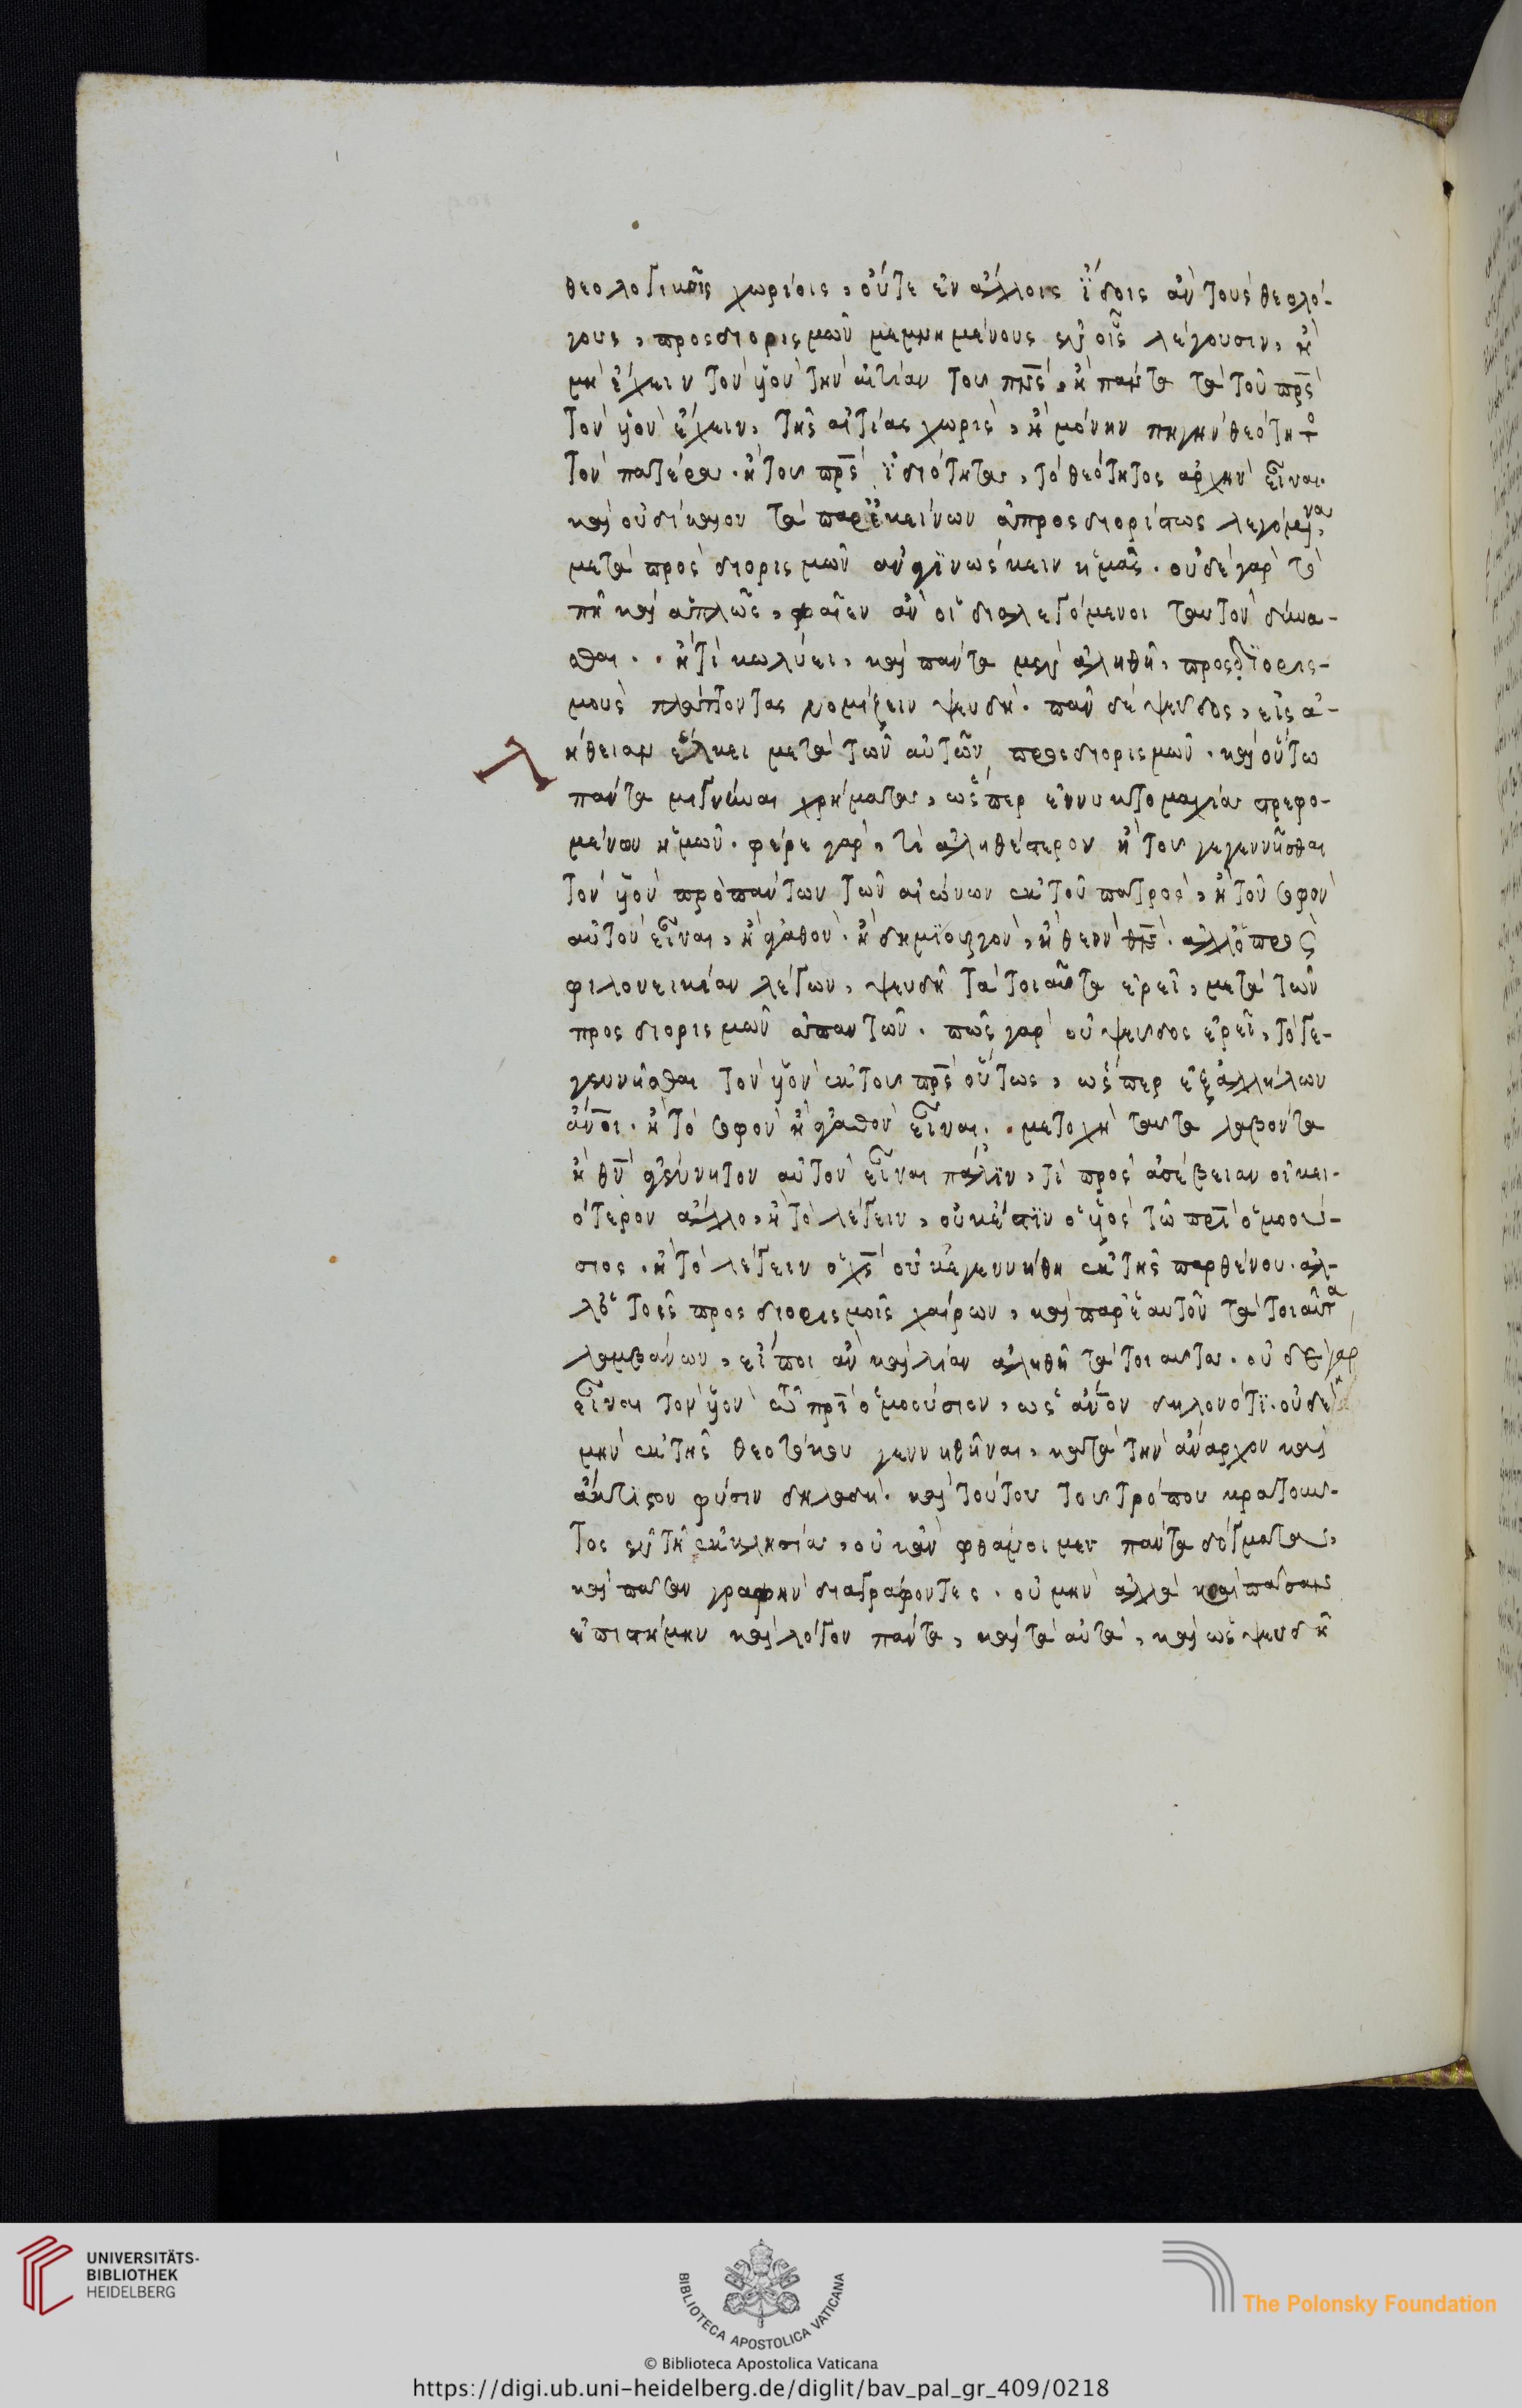 θεολογικοῖς χωρίοις, οὔτε ἐν ἄλλοις ἴδοις ἂν τοὺς θεολό-
γους, προσδιορισμῶν μεμνημένους ἐν οἷς λέγουσιν, ἢ
μὴ ἔχειν τὸν υἱὸν τὴν αἰτίαν τοῦ πρς, ἢ πάντα τὰ τοῦ πρς
τὸν υἱὸν ἔχειν, τῆς αἰτίας χωρὶς, ἢ μόνην πηγὴν θεότητο
τὸν πατέρα. ἢ τοῦ πρς ἰδιότητα, τὸ θεότητος ἀρχὴν εἶναι.
καὶ οὐ δίκαιον τὰ παρ' ἐκείνων ἀπροσδιορίστως λεγόμενα,
μετὰ προσδιορισμῶν ἀναγινώσκειν ἡμᾶς. οὐδὲ γὰρ τὸ
πῆ καὶ ἁπλῶς, φαῖεν ἂν οἱ διαλεγόμενοι ταυτὸν δύνα-
σθαι. ἢ τί κωλύει, καὶ πάντα μὲν ἀληθῆ, προσδιορισ-
μοὺς πλάττοντας νομίζειν ψευδῆ. πᾶν δὲ ψεῦδος, εἰς ἀ-
λήθειαν ἕλκει μετὰ τῶν αὐτῶν προσδιορισμῶν. καὶ οὕτω
πάντα μιγνύναι χρήματα, ὥσπερ ἐν νυκτομαχία στρεφο-
μένων ἡμῶν. φέρε γὰρ, τί ἀληθέστερον ἢ τοῦ γεγεννῆσθαι
τὸν υἱὸν πρὸ πάντων τῶν αἰώνων ἐκ τοῦ πατρὸς, ἢ τοῦ σοφὸν
αὐτὸν εἶναι, ἢ ἀγαθὸν. ἢ δημιουργὸν, ἢ θεὸν. ἀλλ' ὁ πρὸς
φιλονεικίαν λέγων, ψευδῆ τὰ τοιαῦτα ἐρεῖ, μετὰ τῶν
προσδιορισμῶν ἁπάντων. πῶς γὰρ οὐ ψεῦδος ἐρεῖ, τὸ γε-
γεννῆσθαι τὸν υἱὸν ἐκ τοῦ πρς οὕτως, ὥσπερ ἐξ ἀλλήλων
ἄνοι. ἢ τὸ σοφὸν ἢ ἀγαθὸν εἶναι. μετοχῆ ταῦτα λαβόντα
ἢ θν ἀγέννητον αὐτὸν εἶναι πάλιν, τί πρὸς ἀσέβειαν οἰκει-
ότερον ἄλλο, ἢ τὸ λέγειν, οὐκ ἔστιν ὁ υἱὸς τῶ πρι ὁμοού-
σιος. ἢ τὸ λέγειν ὁ χς οὐκ ἐγεννήθη ἐκ τῆς παρθένου. ἀλ-
λ' ὁ τοῖς προσδιορισμοῖς χαίρων, καὶ παρ' ἑαυτοῦ τὰ τοιαῦτα
λαμβάνων, εἴποι ἂν καὶ λίαν ἀληθῆ τὰ τοιαῦτα. οὐδὲ γὰρ
εἶναι τὸν υἱὸν τῶ πρι ὁμοούσιον, ὡς ἄνον δηλονότι. οὐδὲ
μὴν ἐκ τῆς θεοτόκου γεννηθῆναι, κατὰ τὴν ἄναρχον καὶ
ἄκτιστον φύσιν δηλαδή. καὶ τούτου τοῦ τρόπου κρατοῦν-
τος ἐν τῆ ἐκκλησία, οὐκ ἂν φθάνοιμεν πάντα δόγματα,
καὶ πᾶσαν γραφὴν διαγράφοντες. οὐ μὴν ἀλλὰ καὶ πᾶσαν
ἐπιστήμην καὶ λόγον πάντα, καὶ τὰ αὐτὰ, καὶ ὡς ψευδῆ
UNIVERSITÄTS-
BIBLIOTHEK
HEIDELBERG
BIBLIOTECA APOSTOLICA VATICANA
The Polonsky Foundation
© Biblioteca Apostolica Vaticana
https://digi.ub.uni-heidelberg.de/diglit/bav_pal_gr_409/0218